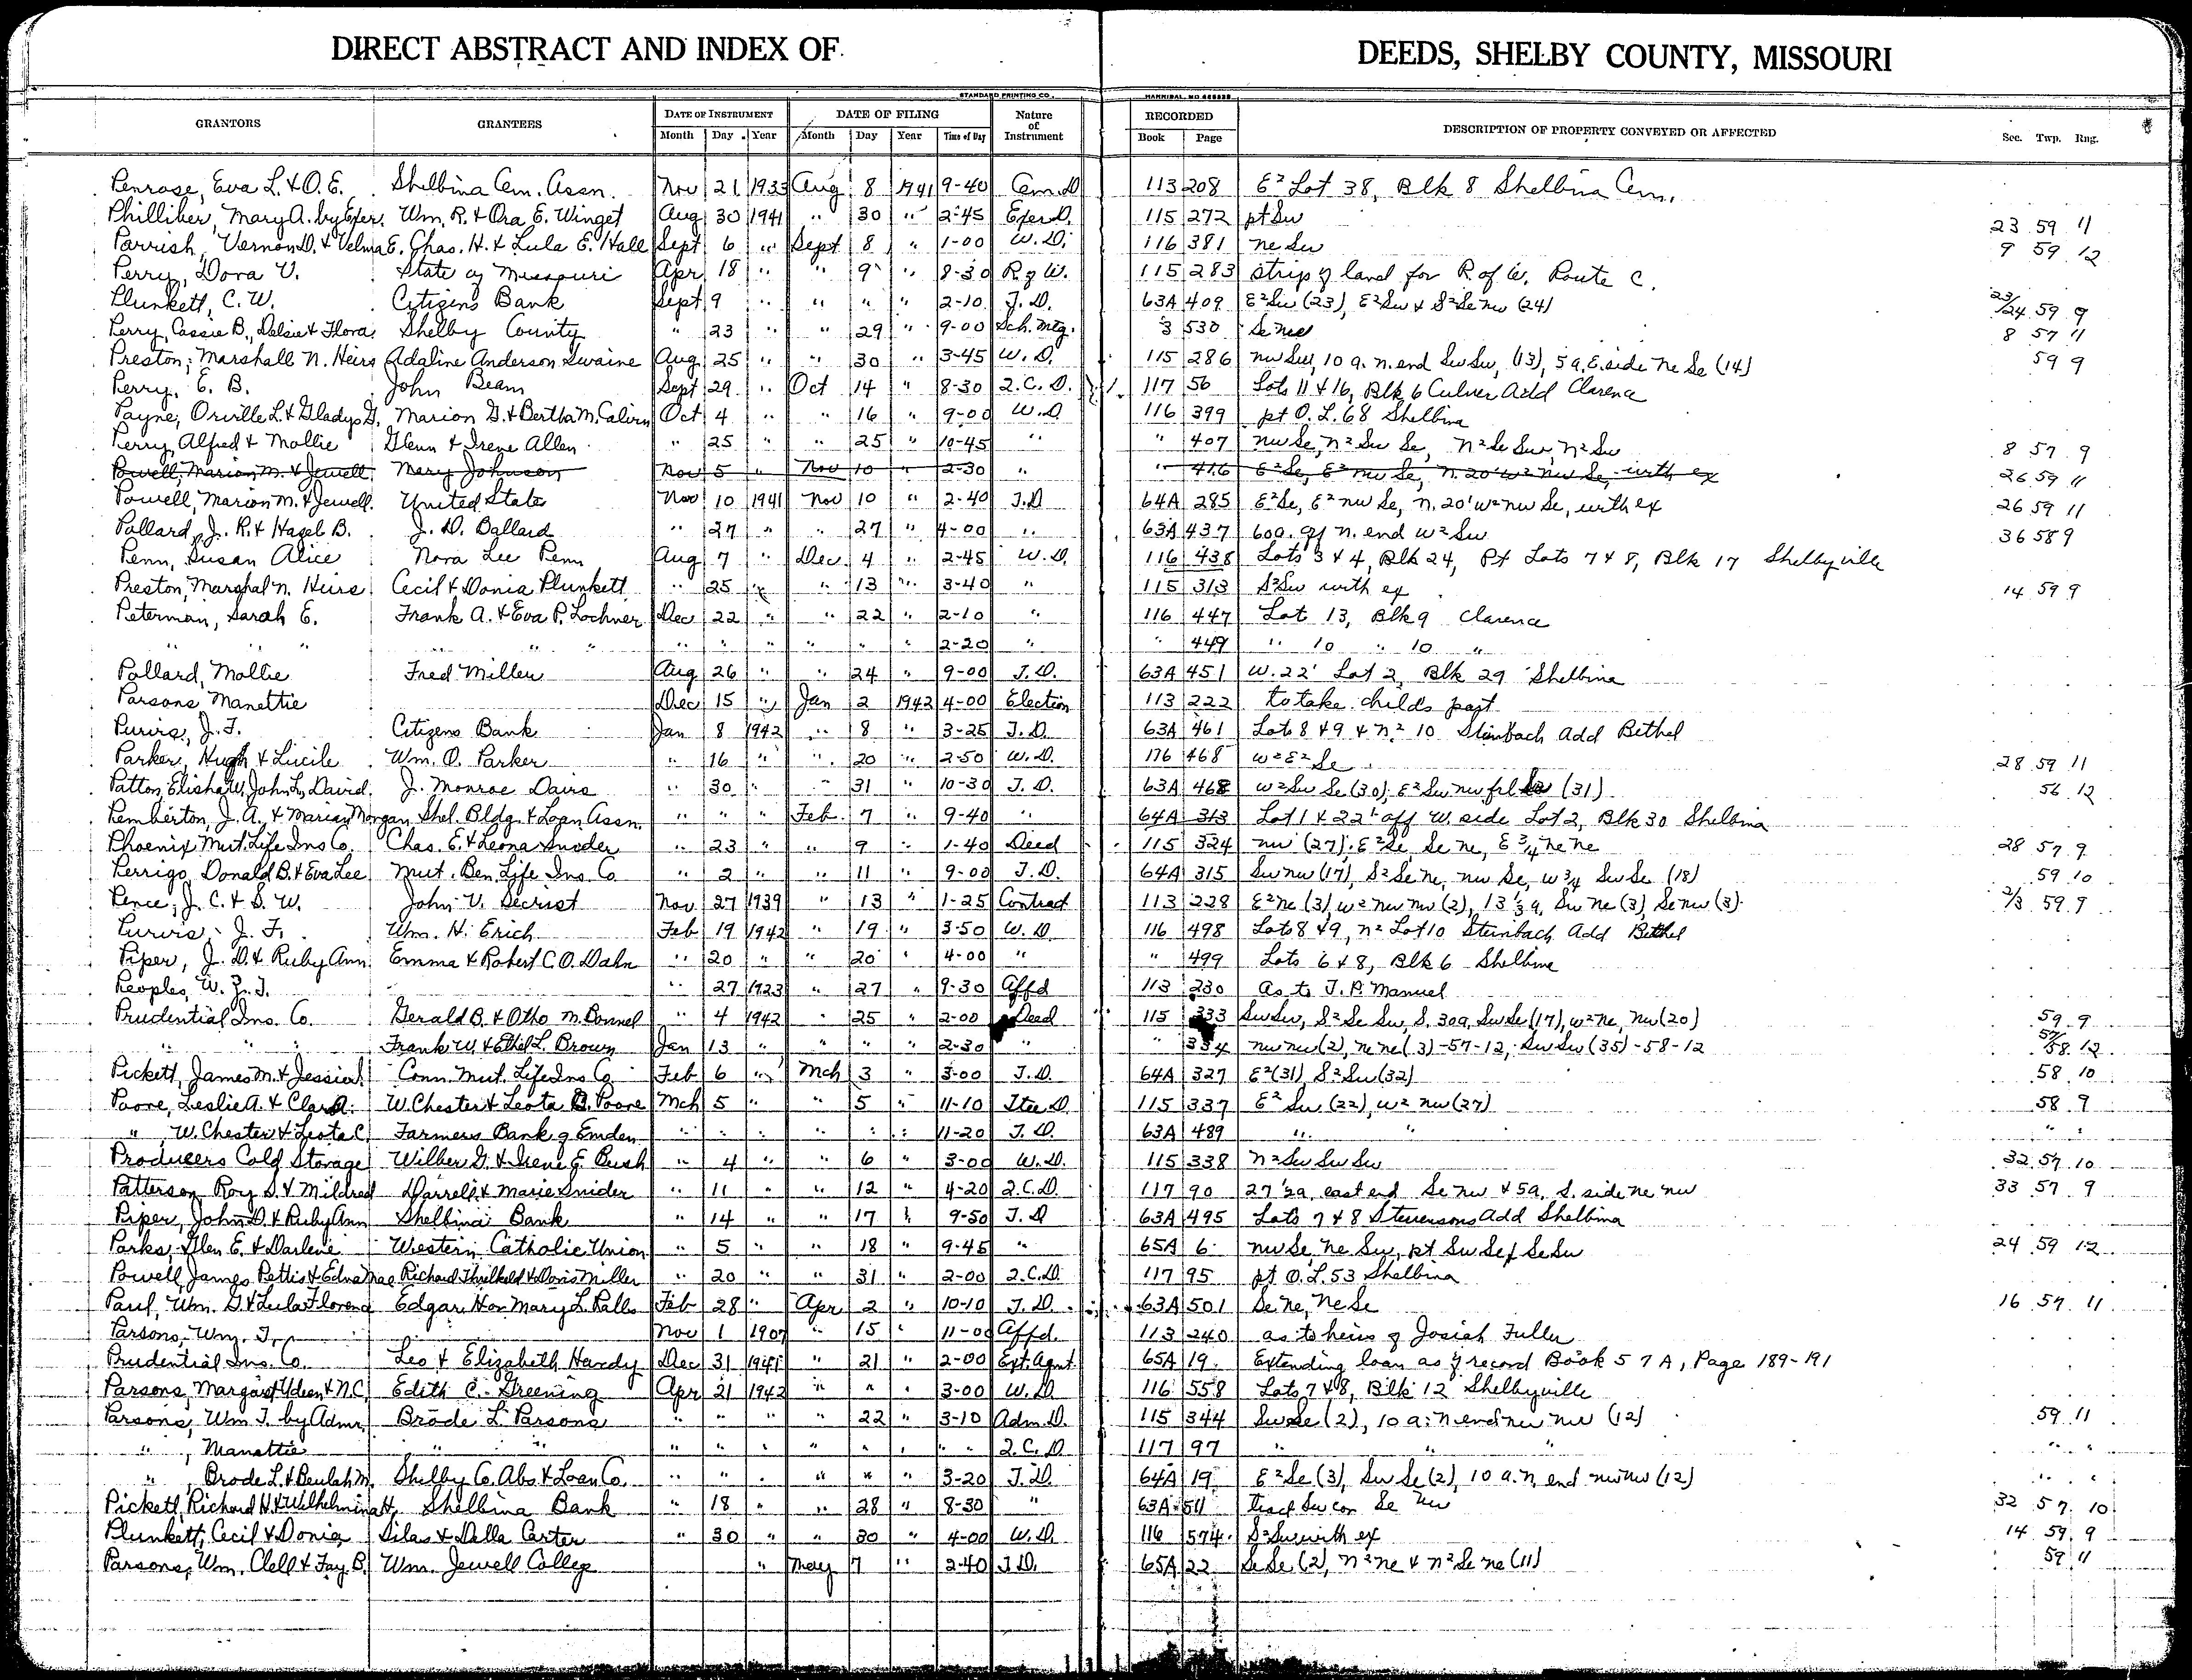 DIRECT ABSTRACT AND INDEX OF DEEDS, SHELBY COUNTY, MISSOURI
STANDARD PRINTING CO. HANNIBAL, NO
GRANTORS GRANTEES DATE OF INSTRUMENT DATE OF FILING Nature of Instrument RECORDED DESCRIPTION OF PROPERTY CONVEYED OR AFFECTED Sec. Twp. Rng.
Month Day Year Month Day Year Time of Day Book Page
Penrose, Eva L. & O. E. Shelbina Cem. Assn. Nov 21 1933 Aug 8 1941 9-40 Cem. D 113 208 E² Lot 38, Blk 8 Shelbina Cem.
Philliber, Mary A. by Exer. Wm. R. & Ora E. Winget Aug 30 1941 " 30 " 2-45 Exer D. 115 272 pt Sw 23 59 11
Parrish, Vernon D. & Velma E. Chas. H. & Lula E. Hall Sept 6 " Sept 8 " 1-00 W. D. 116 381 ne Sw 9 59 12
Perry, Dora V. State of Missouri Apr 18 " " 9 " 8-30 R of W. 115 283 strip of land for R of W. Route C.
Plunkett, C. W. Citizens Bank Sept 9 " " " " 2-10 T. D. 63A 409 E² Sw (23), E² Sw & S² Se nw (24) 23/24 59 9
Perry, Cassie B., Dalsie & Flora Shelby County " 23 " " 29 " 9-00 Sch. Mtg. 3 530 Se ne 8 57 11
Preston, Marshall N. Heirs Adaline Anderson Swaine Aug 25 " " 30 " 3-45 W. D. 115 286 nw Sw, 10 a. n. end Sw Sw, (13), 5 a. E. side ne Se (14) 59 9
Perry, E. B. John Beam Sept 29 " Oct 14 " 8-30 Q. C. D. 117 56 Lots 11 & 16, Blk 6 Culver Add Clarence
Payne, Orville L. & Gladys G. Marion G. & Bertha M. Calvin Oct 4 " " 16 " 9-00 W. D. 116 399 pt O. L. 68 Shelbina
Perry, Alfred & Mollie Glenn & Irene Allen " 25 " " 25 " 10-45 " " 407 nw Se, n² Sw Se, n² Se Sw, n² Sw 8 57 9
Powell, Marion M. & Jewell Mary Johnson Nov 5 " Nov 10 " 2-30 " " 416 E² Se, E² nw Se, n. 20' w² nw Se, with ex 26 59 11
Powell, Marion M. & Jewell United States Nov 10 1941 Nov 10 " 2-40 T. D 64A 285 E² Se, E² nw Se, n. 20' w² nw Se, with ex 26 59 11
Pollard, J. R. & Hazel B. J. D. Ballard " 27 " " 27 " 4-00 " 63A 437 60 a. off n. end w² Sw 36 58 9
Penn, Susan Alice Nora Lee Penn Aug 7 " Dec 4 " 2-45 W. D. 116 438 Lots 3 & 4, Blk 24, Pt Lots 7 & 8, Blk 17 Shelbyville
Preston, Marshal N. Heirs Cecil & Donia Plunkett " 25 " " 13 " 3-40 " 115 313 S² Sw with ex 14 59 9
Peterman, Sarah E. Frank A. & Eva P. Lochner Dec 22 " " 22 " 2-10 " 116 447 Lot 13, Blk 9 Clarence
" " " " " " " " " " " 2-20 " " 449 " 10 " 10 "
Pollard, Mollie Fred Miller Aug 26 " " 24 " 9-00 T. D. 63A 451 W. 22' Lot 2, Blk 29 Shelbina
Parsons Manettie Dec 15 " Jan 2 1942 4-00 Election 113 222 to take childs part
Purvis, J. F. Citizens Bank Jan 8 1942 " 8 " 3-25 T. D. 63A 461 Lots 8 & 9 & n² 10 Steinbach Add Bethel
Parker, Hugh & Lucile Wm. O. Parker " 16 " " 20 " 2-50 W. D. 116 468 w² E² Se 28 59 11
Patton, Elisha W., John L., David. J. Monroe Davis " 30 " " 31 " 10-30 T. D. 63A 468 w² Sw Se (30), E² Sw nw frl (31) 56 12
Pemberton, J. A. & Marian Morgan Shel. Bldg. & Loan Assn. " " " Feb. 7 " 9-40 " 64A 313 Lot 1 & 22' off W. side Lot 2, Blk 30 Shelbina
Phoenix Mut. Life Ins Co. Chas. E. & Leona Snider " 23 " " 9 " 1-40 Deed 115 324 nw (27), E² Se, Se ne, E ¾ ne ne 28 57 9
Perrigo, Donald B. & Eva Lee Mut. Ben. Life Ins. Co " 2 " " 11 " 9-00 T. D. 64A 315 Sw nw (17), S² Se ne, nw Se, w ¾ Sw Se (18) 59 10
Pence, J. C. & S. W. John V. Secrist Nov. 27 1939 " 13 " 1-25 Contract 113 228 E² ne (3), w² nw nw (2), 13⅓ a. Sw ne (3), Se nw (3) 2/3 59 9
Purvis, J. F. Wm. H. Erich Feb 19 1942 " 19 " 3-50 W. D. 116 498 Lots 8 & 9, n² Lot 10 Steinbach Add Bethel
Piper, J. D. & Ruby Ann Emma & Robert C. O. Dahn " 20 " " 20 " 4-00 " " 499 Lots 6 & 8, Blk 6 Shelbina
Peoples, W. Z. T. " 27 1923 " 27 " 9-30 Affd 113 230 As to J. P. Manuel
Prudential Ins. Co. Gerald B. & Otho M. Bonnel " 4 1942 " 25 " 2-00 Deed 115 333 Sw Sw, S² Se Sw, S. 30 a. Sw Se (17), w² ne, nw (20) 59 9
" " " Frank W. & Ethel L. Brown Jan 13 " " " " 2-30 " " 334 nw nw (2), ne ne (3)-57-12, Sw Sw (35)-58-12 57/58 12
Pickett, James M. & Jessie Conn. Mut. Life Ins Co Feb 6 " Mch 3 " 3-00 T. D. 64A 327 E² (31), S² Sw (32) 58 10
Poore, Leslie A. & Clara A. W. Chester & Leota C. Poore Mch 5 " " 5 " 11-10 Ttee D. 115 337 E² Sw (22), w² nw (27) 58 9
" , W. Chester & Leota C. Farmers Bank of Emden " " " " " " 11-20 T. D. 63A 489 " " " "
Producers Cold Storage Wilber G. & Irene E. Bush " 4 " " 6 " 3-00 W. D. 115 338 n² Sw Sw Sw 32 57 10
Patterson Roy S. & Mildred Darrell & Marie Snider " 11 " " 12 " 4-20 Q. C. D. 117 90 27½ a. east end Se nw & 5 a. S. side ne nw 33 57 9
Piper, John D. & Ruby Ann Shelbina Bank " 14 " " 17 " 9-50 T. D 63A 495 Lots 7 & 8 Stevensons Add Shelbina
Parks, Glen E. & Darlene Western Catholic Union " 5 " " 18 " 9-45 " 65A 6 nw Se, ne Sw, pt Sw Se & Se Sw 24 59 12
Powell, James Pettis & Edna Mae Richard Threlkeld & Doris Miller " 20 " " 31 " 2-00 Q. C. D. 117 95 pt O. L. 53 Shelbina
Paul, Wm. G. & Lula Florence Edgar H or Mary L. Ralls Feb 28 " Apr 2 " 10-10 T. D. 63A 501 Se ne, ne Se 16 57 11
Parsons, Wm. T. Nov 1 1907 " 15 " 11-00 Affd. 113 240 as to heirs of Josiah Fuller
Prudential Ins. Co. Leo & Elizabeth Hardy Dec 31 1941 " 21 " 2-00 Ext. Agmt. 65A 19 Extending loan as of record Book 57A, Page 189-191
Parsons, Margaret Udeen & N. C. Edith C. Greening Apr 21 1942 " " " 3-00 W. D. 116 558 Lots 7 & 8, Blk 12 Shelbyville
Parsons, Wm T. by Admr. Brode L. Parsons " " " " 22 " 3-10 Adm. D. 115 344 Sw Se (2), 10 a. n end nw nw (12) 59 11
" , Manattie " " " " " " " " " Q. C. D. 117 97 " " " " "
" , Brode L. & Beulah M. Shelby Co. Abs. & Loan Co. " " " " " " 3-20 T. D. 64A 19 E² Se (3), Sw Se (2), 10 a. n. end nw nw (12) " "
Pickett, Richard H. & Wilhelmina H. Shelbina Bank " 18 " " 28 " 8-30 " 63A 511 tract Sw cor Se nw 32 57 10
Plunkett, Cecil & Donia Silas & Dalla Carter " 30 " " 30 " 4-00 W. D. 116 574 S² Sw with ex 14 59 9
Parsons, Wm. Clell & Fay B. Wm. Jewell College " May 7 " 2-40 T. D. 65A 22 Se Se (2), n² ne & n² Se ne (11) 59 11